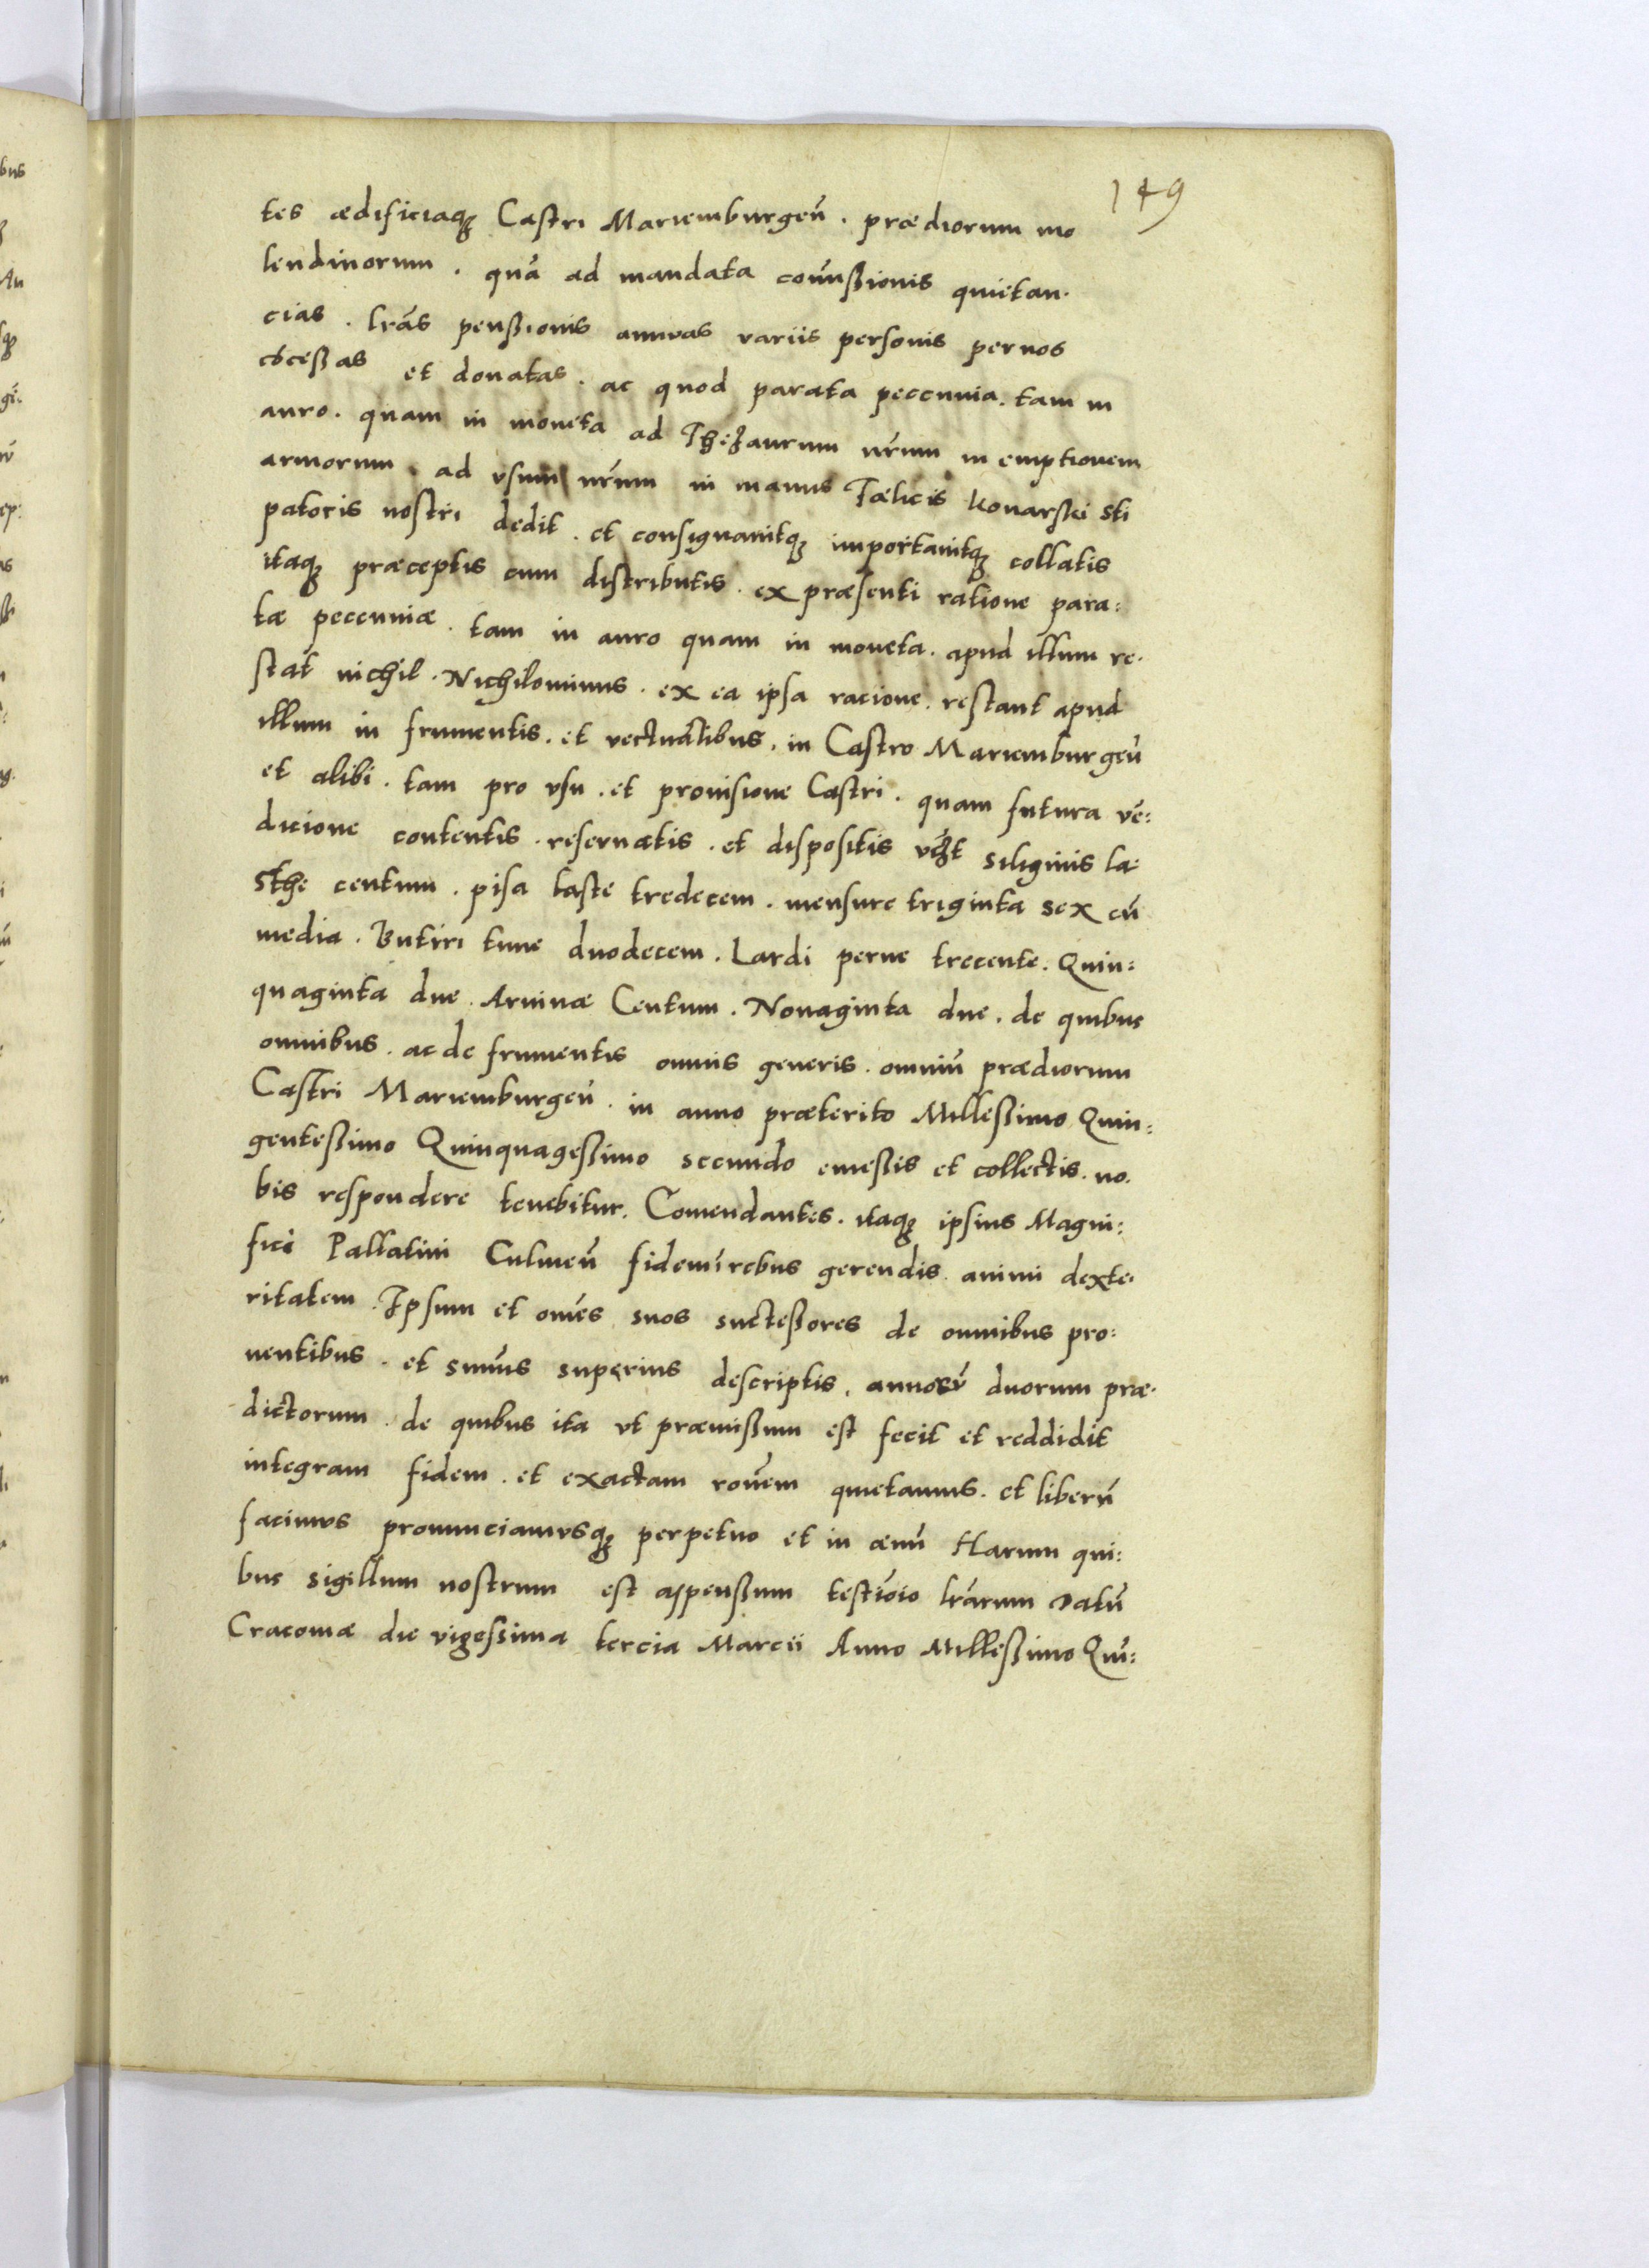 149
tes ædificiaqꝫ Castri Mariemburgen̄ . prædiorum mo
lendinorum . quā ad mandata com̄ißionis quietan.
cias . lrās penßionis annuas variis personis per nos
cōceßas et donatas . ac quod parata peccunia . tam in
auro . quam in moneta ad Thezaurum nrūm in emptionem
armorum . ad vsum nrūm in manus Fælicis Konarski sti
patoris nostri dedit . et consignauitqꝫ importauitqꝫ collatis
itaqꝫ præceptis cum distributis . ex præsenti ratione para:
tæ peccuniæ . tam in auro quam in moneta . apud illum re.
stat nichil . Nichilominus . ex ea ipsa racione . restant apud
illum in frumentis . et vectualibus . in Castro Mariemburgen̄
et alibi . tam pro vsu . et prouisione Castri . quam futura vē:
dicione contentis . reseruatis . et dispositis siliginis la
sthe centum . pisa laste tredecem . mensure triginta sex cū
media . Butiri tune duodecem . Lardi perne trecente . Quin:
quaginta due . Aruinæ Centum . Nonaginta due . de quibus
omnibus . ac de frumentis omnis generis . omniū prædiorum
Castri Mariemburgen̄ . in anno præterito Milleßimo Quin:
genteßimo Quinquageßimo secundo emeßis et collectis . no.
bis respondere tenebitur . Comendantes . itaqꝫ ipsius Magni:
fici Pallatini Culmen̄ fidem ī rebus gerendis animi dexte.
ritatem . Ipsum et om̄es suos succeßores de omnibus pro:
uentibus . et sum̄is superius descriptis . annorū duorum præ.
dictorum . de quibus ita vt præmißum est fecit et reddidit
integram fidem . et exactam ron̄em quietamus . et liberū
facimus pronunciamusqꝫ perpetuo et in æuū Harum qui:
bus sigillum nostrum est appenßum testīoio lrārum Datū
Cracouiæ die vigessima tercia Marcii Anno Milleßimo Quī: